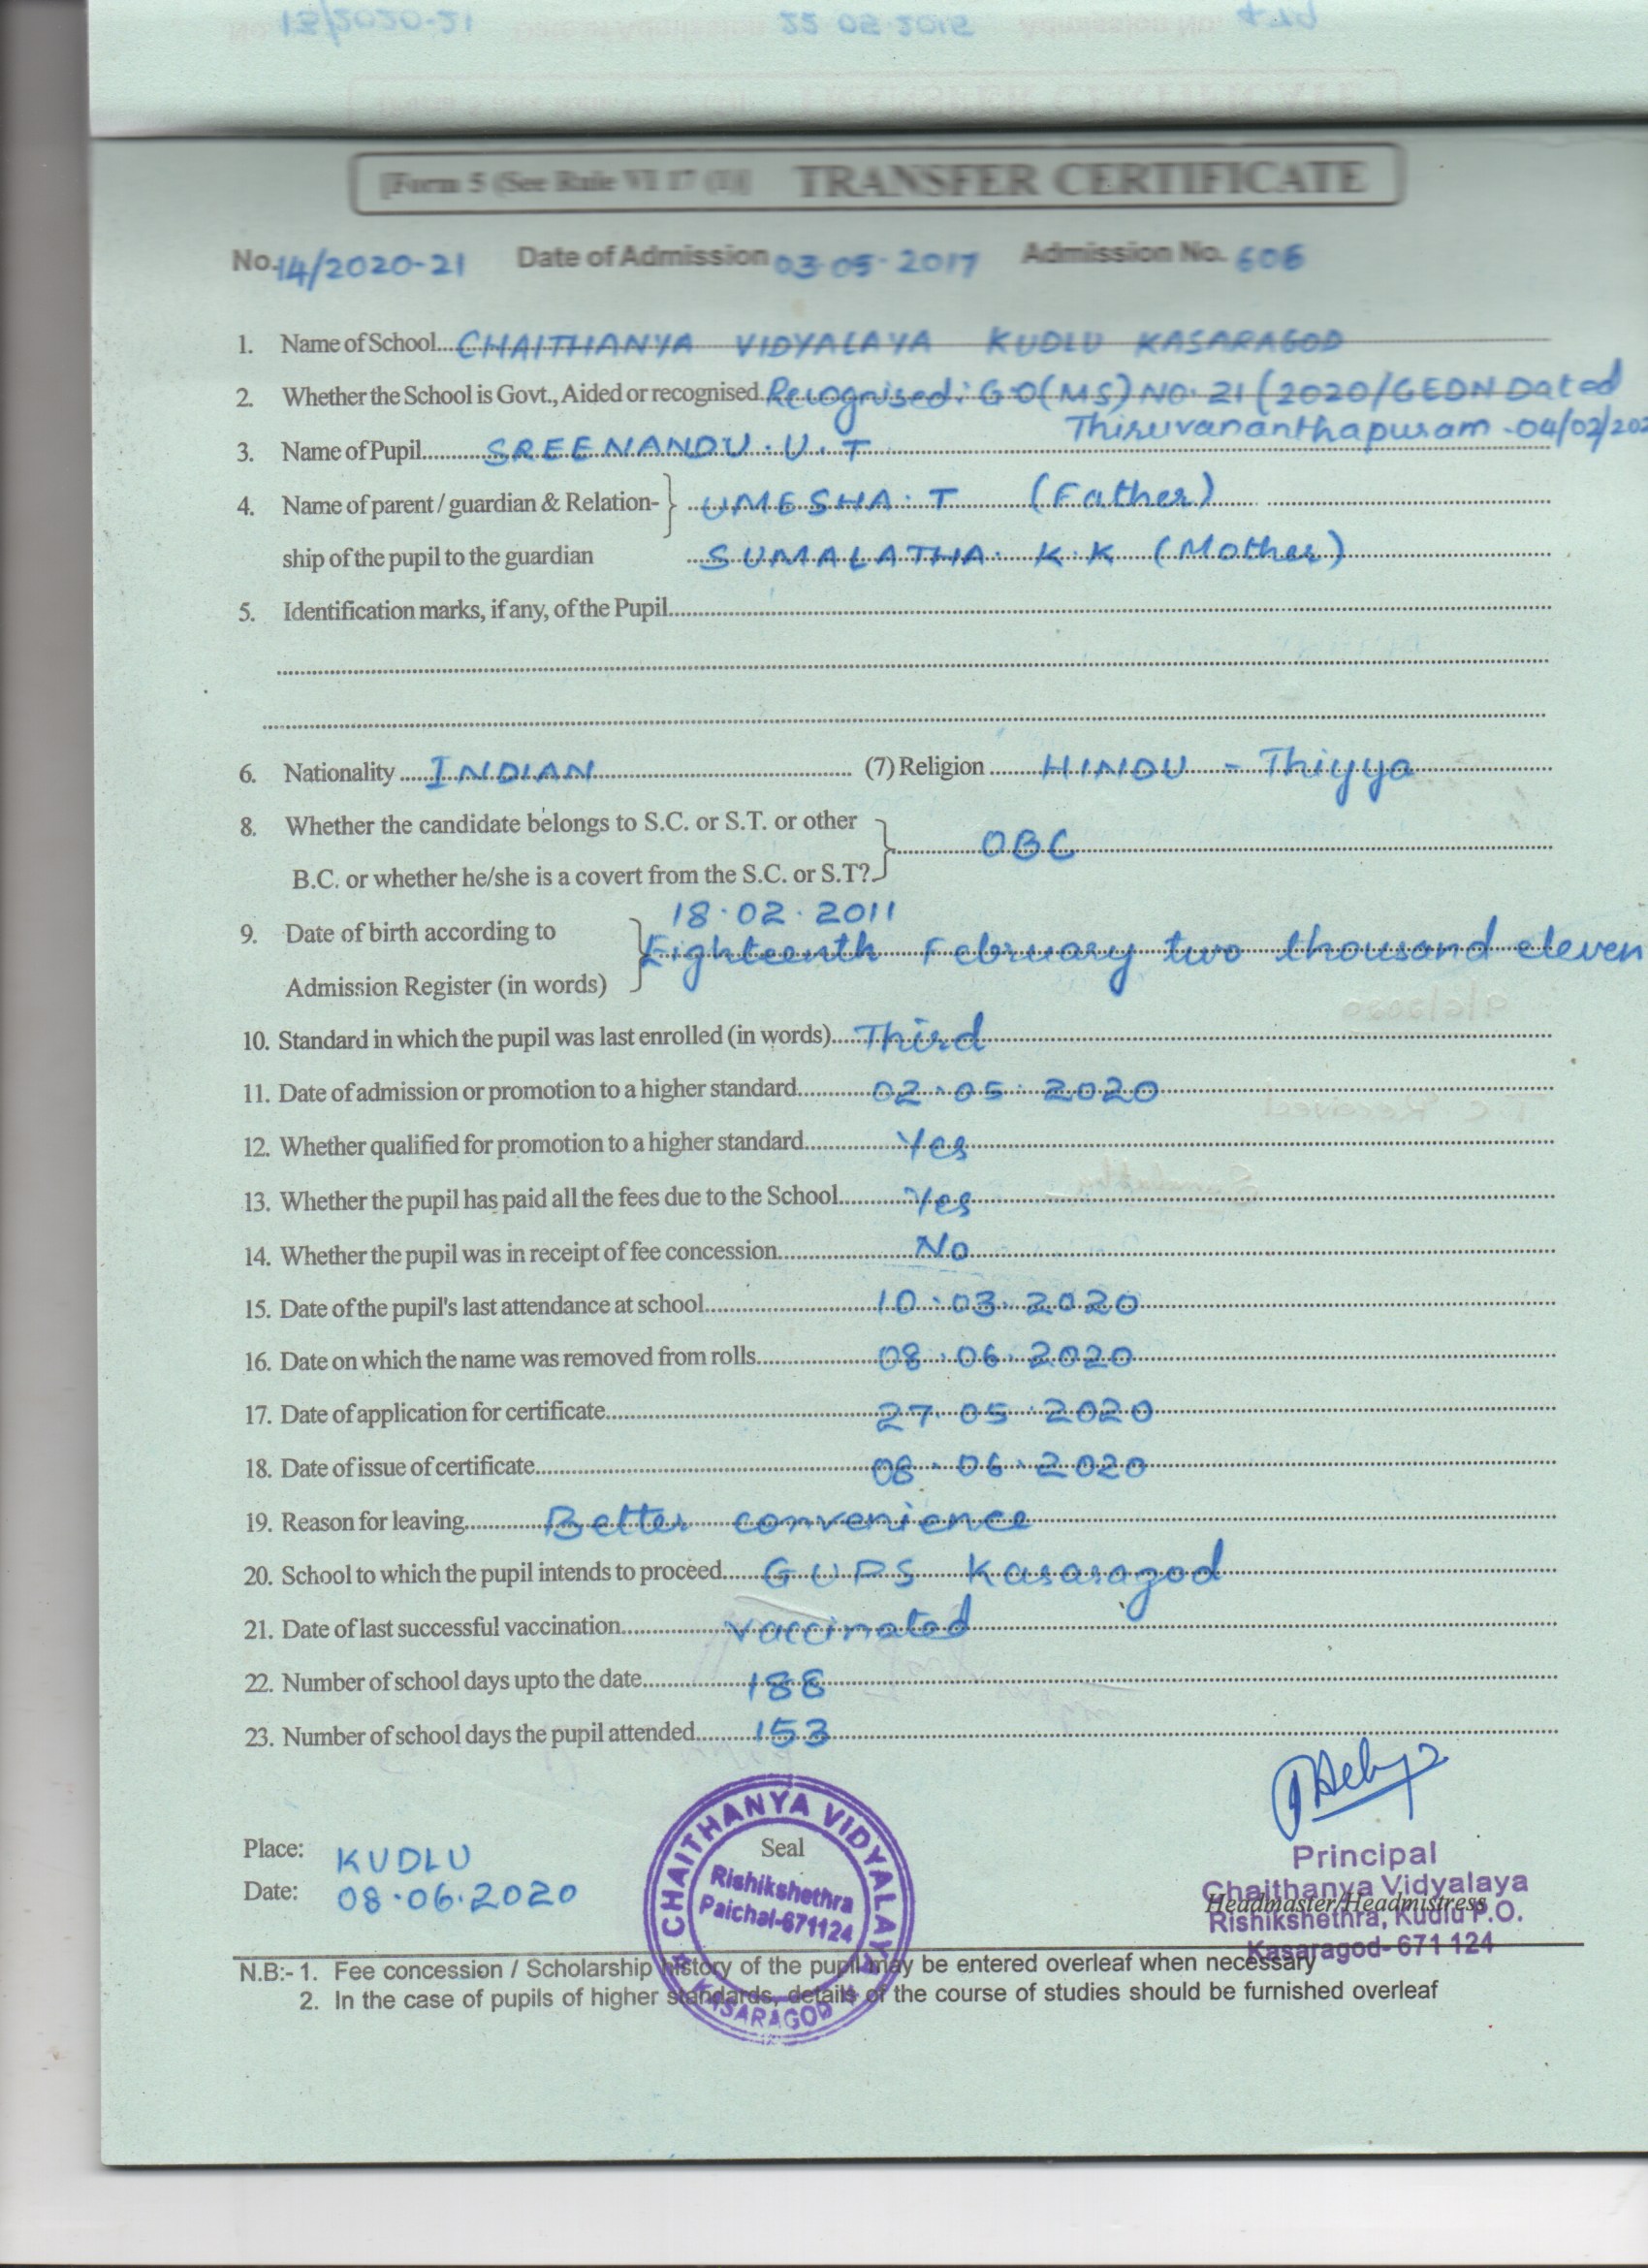 [Form 5 (See Rule VI 17 (1)] TRANSFER CERTIFICATE
No. 14/2020-21 Date of Admission 03-05-2017 Admission No. 606
1. Name of School CHAITHANYA VIDYALAYA KUDLU KASARAGOD
2. Whether the School is Govt., Aided or recognised Recognised: G.O(MS) NO. 21 (2020/GEDN Dated
Thiruvananthapuram - 04/02/202
3. Name of Pupil SREENANDU. U. T
4. Name of parent / guardian & Relation- UMESHA. T (Father)
ship of the pupil to the guardian SUMALATHA. K. K (Mother)
5. Identification marks, if any, of the Pupil
6. Nationality INDIAN (7) Religion HINDU - Thiyya
8. Whether the candidate belongs to S.C. or S.T. or other
OBC
B.C. or whether he/she is a covert from the S.C. or S.T?
18.02.2011
9. Date of birth according to Eighteenth February two thousand eleven
Admission Register (in words)
10. Standard in which the pupil was last enrolled (in words) Third
11. Date of admission or promotion to a higher standard 02.05.2020
12. Whether qualified for promotion to a higher standard Yes
13. Whether the pupil has paid all the fees due to the School Yes
14. Whether the pupil was in receipt of fee concession No
15. Date of the pupil's last attendance at school 10.03.2020
16. Date on which the name was removed from rolls 08.06.2020
17. Date of application for certificate 27.05.2020
18. Date of issue of certificate 08.06.2020
19. Reason for leaving Better convenience
20. School to which the pupil intends to proceed GUPS Kasaragod
21. Date of last successful vaccination vaccinated
22. Number of school days upto the date 188
23. Number of school days the pupil attended 153
Place: KUDLU
Date: 08.06.2020
Seal
CHAITHANYA VIDYALAYA
Rishikshethra
Paichal-671124
KASARAGOD
Principal
Chaithanya Vidyalaya
Headmaster/Headmistress
Rishikshethra, Kudlu P.O.
Kasaragod- 671 124
N.B:- 1. Fee concession / Scholarship history of the pupil may be entered overleaf when necessary
2. In the case of pupils of higher standards, details of the course of studies should be furnished overleaf